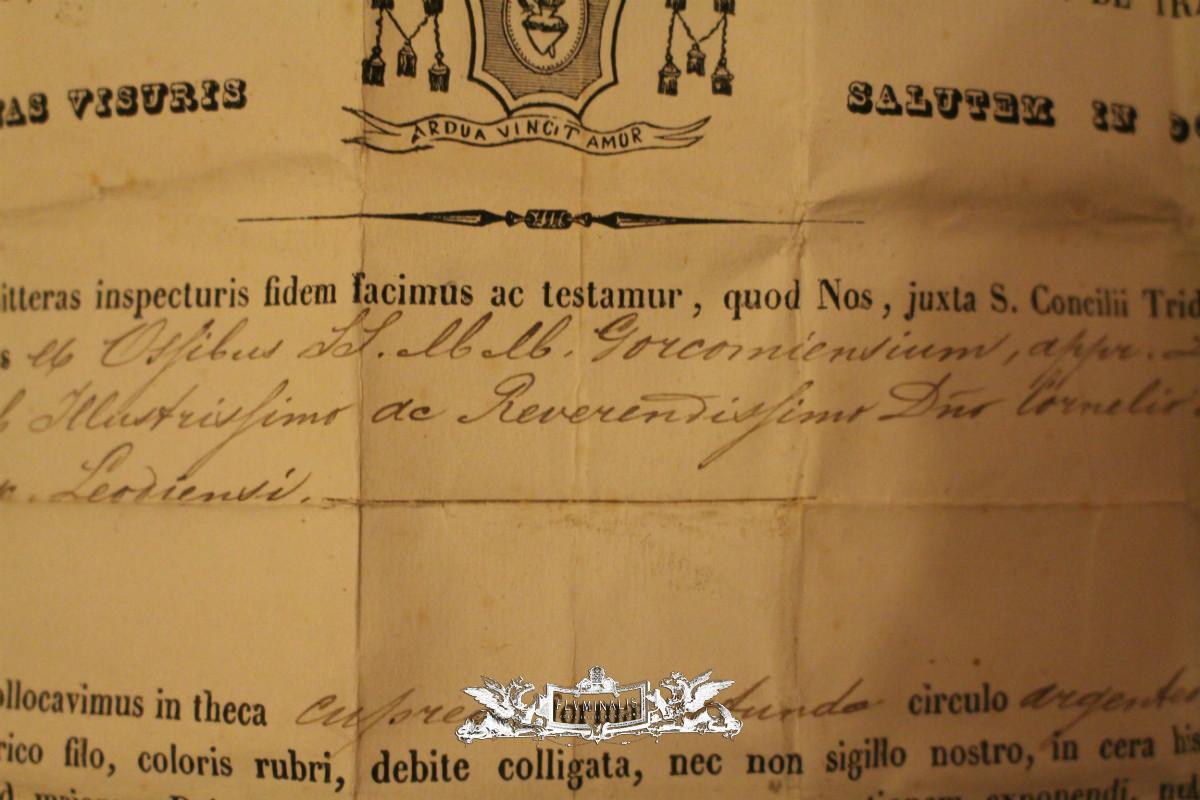 DE TR
AS VISURIS
SALUTEM IN
ARDUA VINCIT AMOR
itteras inspecturis fidem facimus ac testamur, quod Nos, juxta S. Concilii Trid
s ex Ossibus SS. MM. Gorcomiensium, appr.
Illustrissimo ac Reverendissimo Dño Cornelio
Leodiensi.
ollocavimus in theca cuprea tunda circulo argenteo
rico filo, coloris rubri, debite colligata, nec non sigillo nostro, in cera his
FLUMINALIS
exponendi,